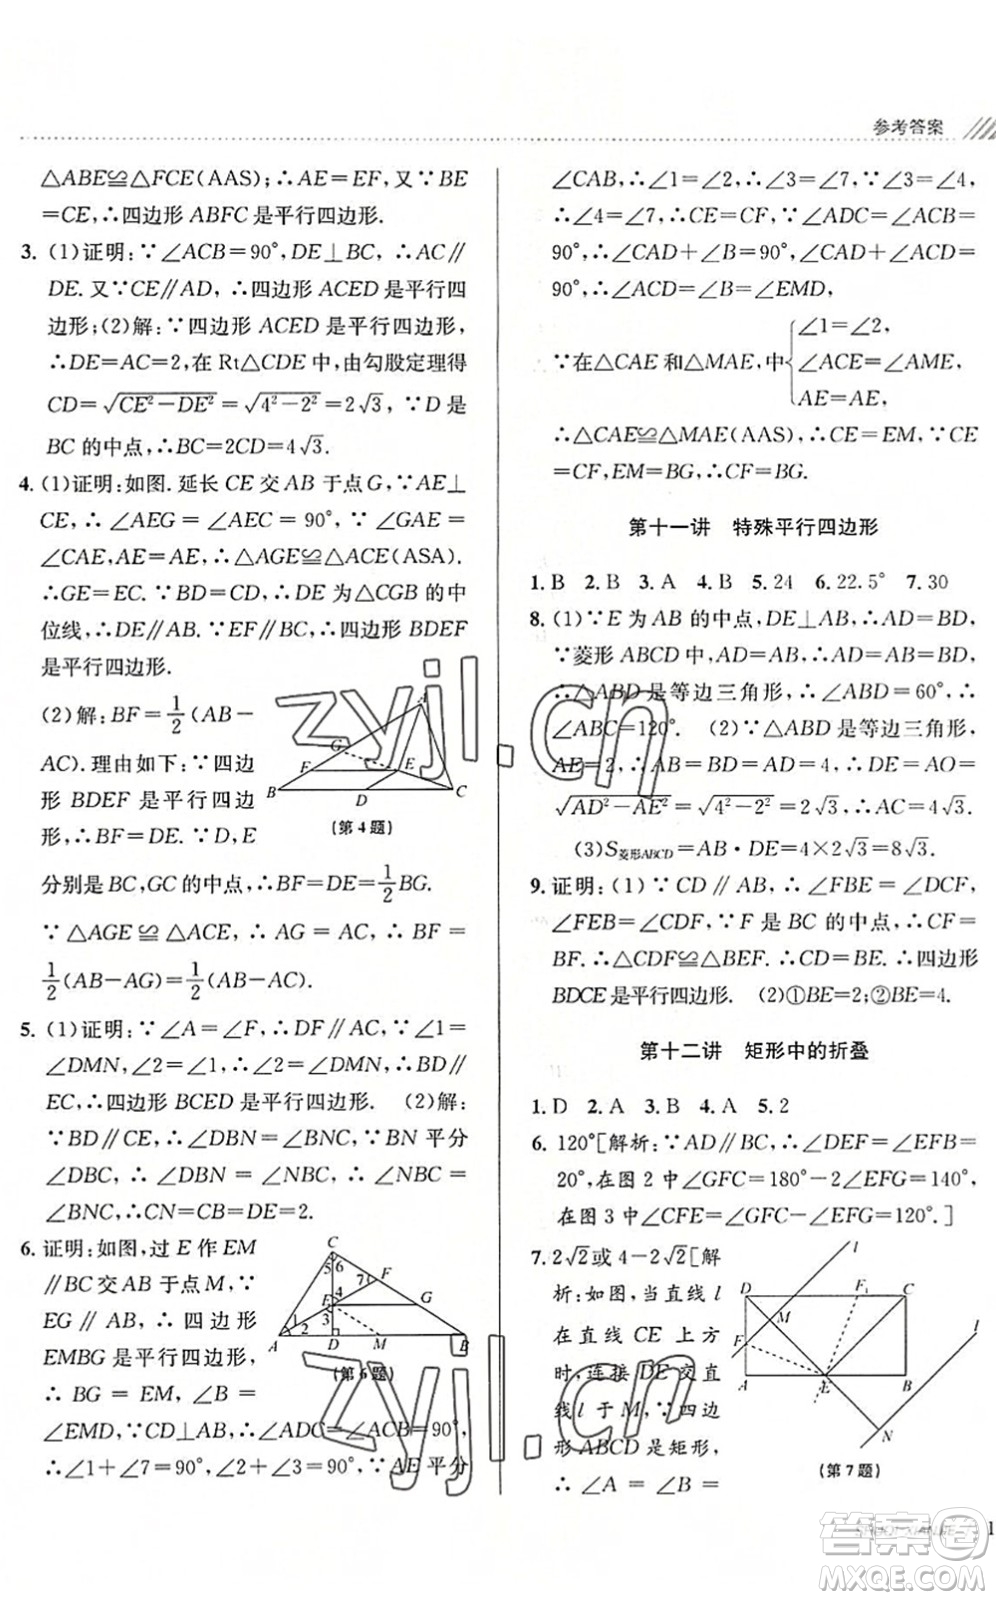 参考答案
△ABE≌△FCE(AAS);∴AE=EF,又∵BE
=CE,∴四边形 ABFC 是平行四边形.
3. (1)证明:∵∠ACB=90°,DE⊥BC,∴AC∥
DE.又∵CE∥AD,∴四边形 ACED 是平行四
边形;(2)解:∵四边形 ACED 是平行四边形,
∴DE=AC=2,在 Rt△CDE 中,由勾股定理得
CD=√(CE²-DE²)=√(4²-2²)=2√3,∵D 是
BC 的中点,∴BC=2CD=4√3.
4. (1)证明:如图.延长 CE 交 AB 于点 G,∵AE⊥
CE,∴∠AEG=∠AEC=90°,∵∠GAE=
∠CAE,AE=AE,∴△AGE≌△ACE(ASA).
∴GE=EC.∵BD=CD,∴DE 为△CGB 的中
位线,∴DE∥AB.∵EF∥BC,∴四边形 BDEF
是平行四边形.
(2)解:BF=1/2(AB-
AC).理由如下:∵四边
形 BDEF 是平行四边
形,∴BF=DE.∵D,E
A
G
F
E
B
D
C
(第 4 题)
分别是 BC,GC 的中点,∴BF=DE=1/2BG.
∵△AGE≌△ACE,∴AG=AC,∴BF=
1/2(AB-AG)=1/2(AB-AC).
5. (1)证明:∵∠A=∠F,∴DF∥AC,∵∠1=
∠DMN,∠1=∠2,∴∠2=∠DMN,∴DB∥
EC,∴四边形 BCED 是平行四边形. (2)解:
∵BD∥CE,∴∠DBN=∠BNC,∵BN 平分
∠DBC,∴∠DBN=∠NBC,∴∠NBC=
∠BNC,∴CN=CB=DE=2.
6. 证明:如图,过 E 作 EM
∥BC 交 AB 于点 M,∵
EG∥AB,∴四边形
EMBG 是平行四边形,
∴BG=EM,∠B=
∠EMD,∵CD⊥AB,∴∠ADC=∠ACB=90°,
∴∠1+∠7=90°,∠2+∠3=90°,∵AE 平分
C
5
6
F
7
E
4
G
3
1
2
A
D
M
B
(第 6 题)
∠CAB,∴∠1=∠2,∴∠3=∠7,∵∠3=∠4,
∴∠4=∠7,∴CE=CF,∵∠ADC=∠ACB=
90°,∴∠CAD+∠B=∠CAD+∠ACD=
90°,∴∠ACD=∠B=∠EMD,
∵在△CAE 和△MAE,中{∠1=∠2,
∠ACE=∠AME,
AE=AE,
∴△CAE≌△MAE(AAS),∴CE=EM,∵CE
=CF,EM=BG,∴CF=BG.
第十一讲 特殊平行四边形
1. B 2. B 3. A 4. B 5. 24 6. 22.5° 7. 30
8. (1)∵E 为 AB 的中点,DE⊥AB,∴AD=BD,
∵菱形 ABCD 中,AD=AB,∴AD=BD=AB,
∴△ABD 是等边三角形,∴∠DAB=60°,∴
∠ABC=120°. (2)∵△ABD 是等边三角形,
AE=2,∴AD=AB=4,∴DE=AO=
√(AD²-AE²)=√(4²-2²)=2√3,∴AC=4√3.
(3)S菱形ABCD=AB·DE=4×2√3=8√3.
9. 证明:(1)∵CD∥AB,∴∠FBE=∠DCF,
∠FEB=∠CDF,∵F 是 BC 的中点,∴CF=
BF.∴△CDF≌△BEF.∴CD=BE.∴四边形
BDCE 是平行四边形. (2)①BE=2;②BE=4.
第十二讲 矩形中的折叠
1. D 2. A 3. B 4. A 5. 2
6. 120°[解析:∵AD∥BC,∴∠DEF=∠EFB=
20°,在图 2 中∠GFC=180°-2∠EFG=140°,
在图 3 中∠CFE=∠GFC-∠EFG=120°.]
7. 2√2或 4-2√2[解
析:如图,当直线 l
在直线 CE 上方
时,连接 DE 交直
线 l 于 M,∵四边
形 ABCD 是矩形,
∴∠A=∠B=
l
D
F₁
C
M
F
l
A
E
B
N
(第 7 题)
zyjl.cn
zyjl.cn
答案圈
MXQE.COM
1